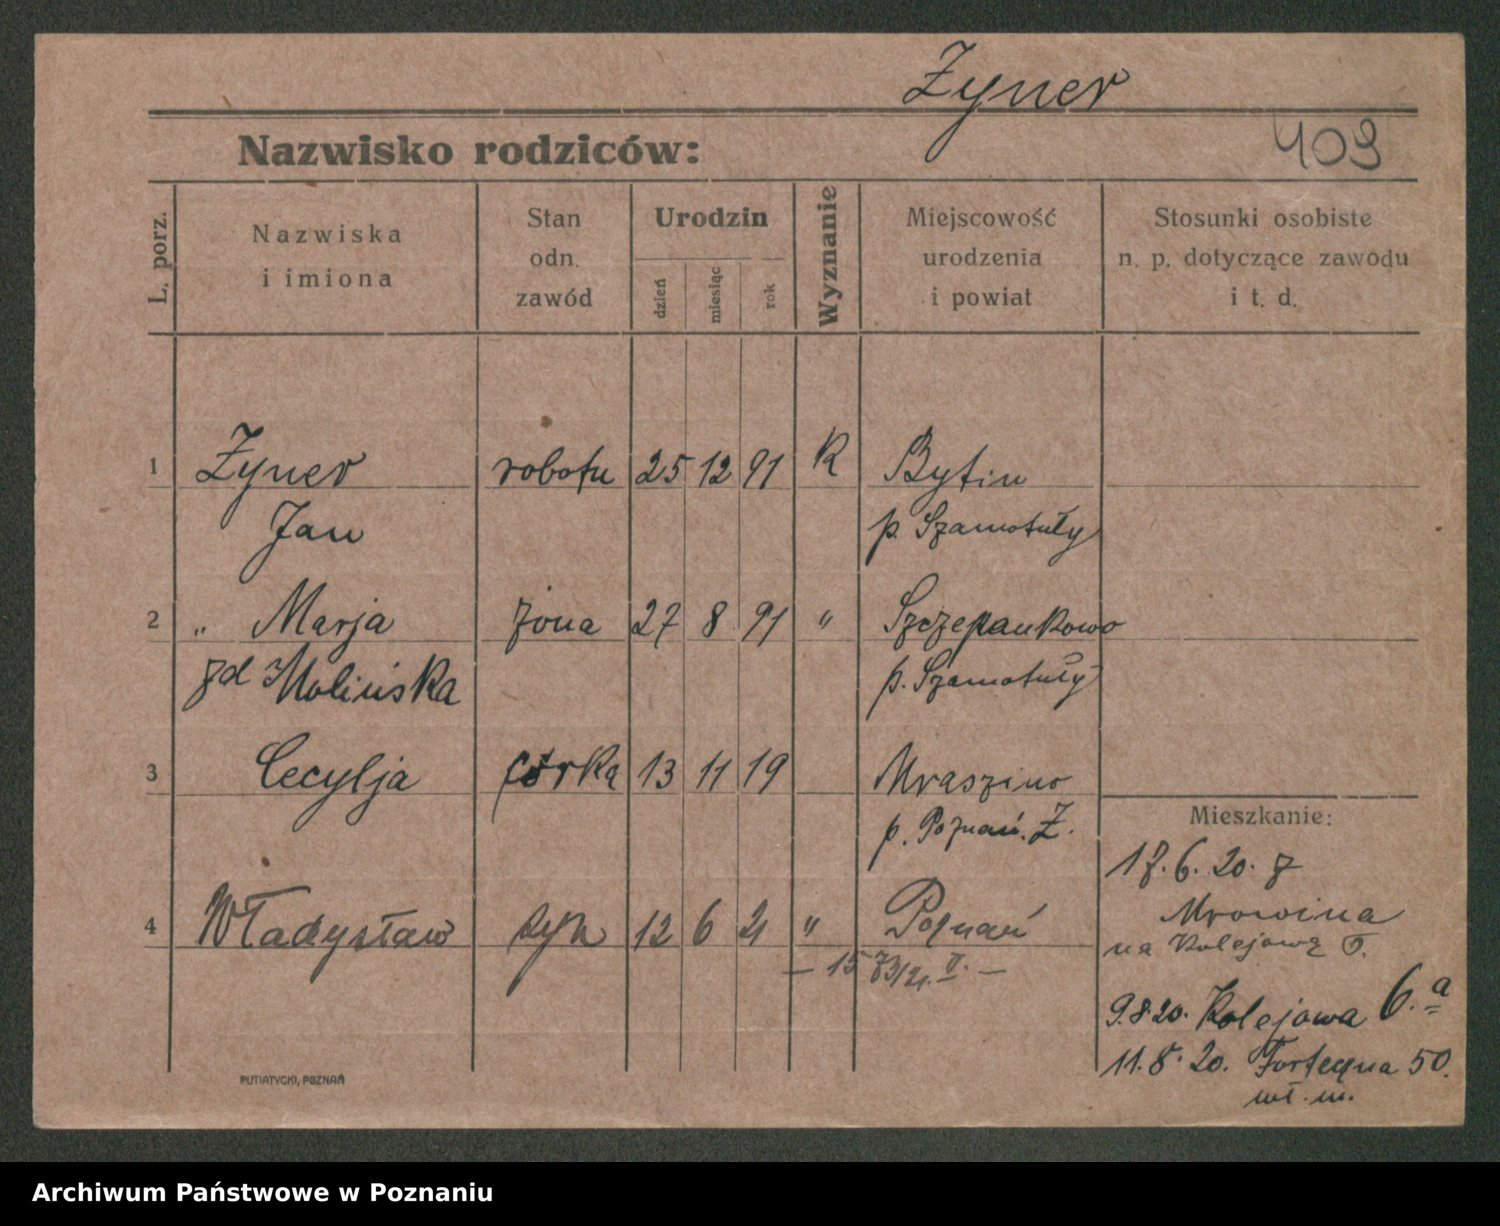 Zyner
Nazwisko rodziców:
409
L. porz.
Nazwiska
i imiona
Stan
odn.
zawód
Urodzin
dzień
miesiąc
rok
Wyznanie
Miejscowość
urodzenia
i powiat
Stosunki osobiste
n. p. dotyczące zawodu
i t. d.
1 Zyner robotn 25 12 91 K Bytin
Jan p. Szamotuły
2 „ Marja żona 27 8 91 „ Szczepankowo
zd Molińska p. Szamotuły
3 Cecylja córka 13 11 19 Mraszino
p. Poznań. Z.
Mieszkanie:
17.6.20. z
Mrowina
na Kolejową 6.
4 Władysław syn 12 6 21 „ Poznań
— 15 73/21. II. —
9.8.20. Kolejowa 6.a
11.8.20. Forteczna 50.
wł. m.
PUTIATYCKI, POZNAŃ
Archiwum Państwowe w Poznaniu